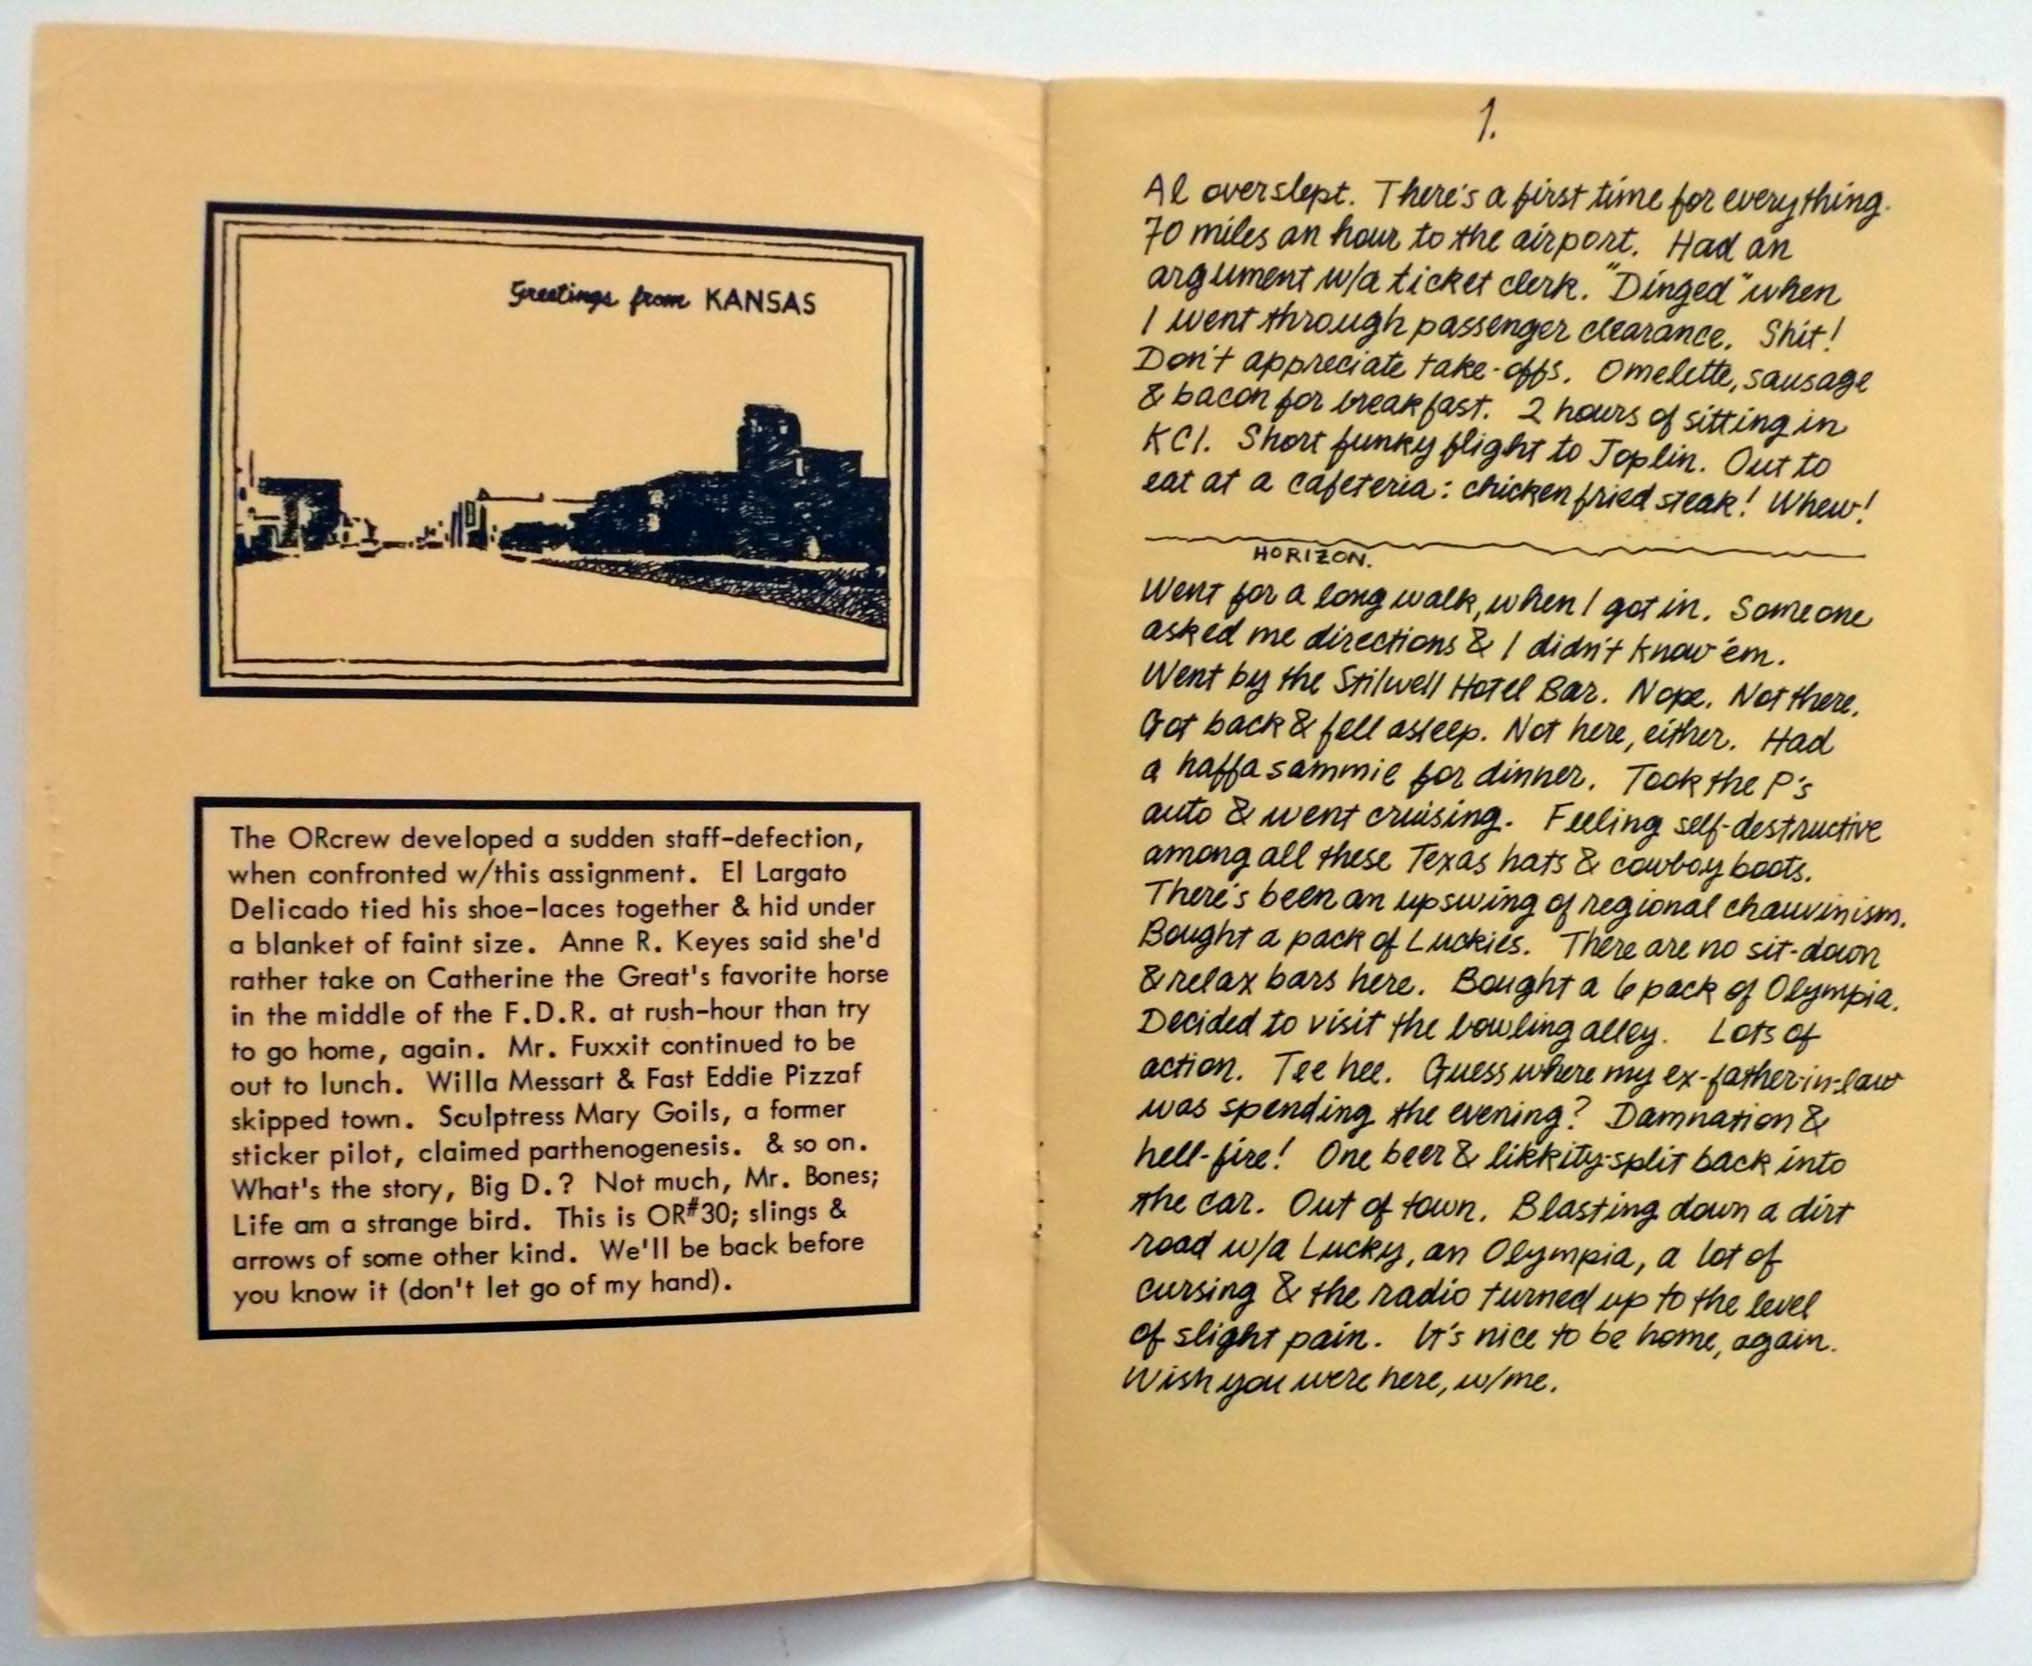 Greetings from KANSAS
The ORcrew developed a sudden staff-defection,
when confronted w/this assignment. El Largato
Delicado tied his shoe-laces together & hid under
a blanket of faint size. Anne R. Keyes said she'd
rather take on Catherine the Great's favorite horse
in the middle of the F.D.R. at rush-hour than try
to go home, again. Mr. Fuxxit continued to be
out to lunch. Willa Messart & Fast Eddie Pizzaf
skipped town. Sculptress Mary Goils, a former
sticker pilot, claimed parthenogenesis. & so on.
What's the story, Big D.? Not much, Mr. Bones;
Life am a strange bird. This is OR#30; slings &
arrows of some other kind. We'll be back before
you know it (don't let go of my hand).
1.
Al overslept. There's a first time for everything.
70 miles an hour to the airport. Had an
argument w/a ticket clerk. "Dinged" when
I went through passenger clearance. Shit!
Don't appreciate take-offs. Omelette, sausage
& bacon for breakfast. 2 hours of sitting in
KCI. Short funky flight to Joplin. Out to
eat at a cafeteria: chicken fried steak! Whew!
HORIZON.
Went for a long walk, when I got in. Someone
asked me directions & I didn't know 'em.
Went by the Stilwell Hotel Bar. Nope. Not there.
Got back & fell asleep. Not here, either. Had
a haffa sammie for dinner. Took the P's
auto & went cruising. Feeling self-destructive
among all these Texas hats & cowboy boots.
There's been an upswing of regional chauvinism.
Bought a pack of Luckies. There are no sit-down
& relax bars here. Bought a 6 pack of Olympia.
Decided to visit the bowling alley. Lots of
action. Tee hee. Guess where my ex-father-in-law
was spending the evening? Damnation &
hell-fire! One beer & likkity-split back into
the car. Out of town. Blasting down a dirt
road w/a Lucky, an Olympia, a lot of
cursing & the radio turned up to the level
of slight pain. It's nice to be home, again.
Wish you were here, w/me.